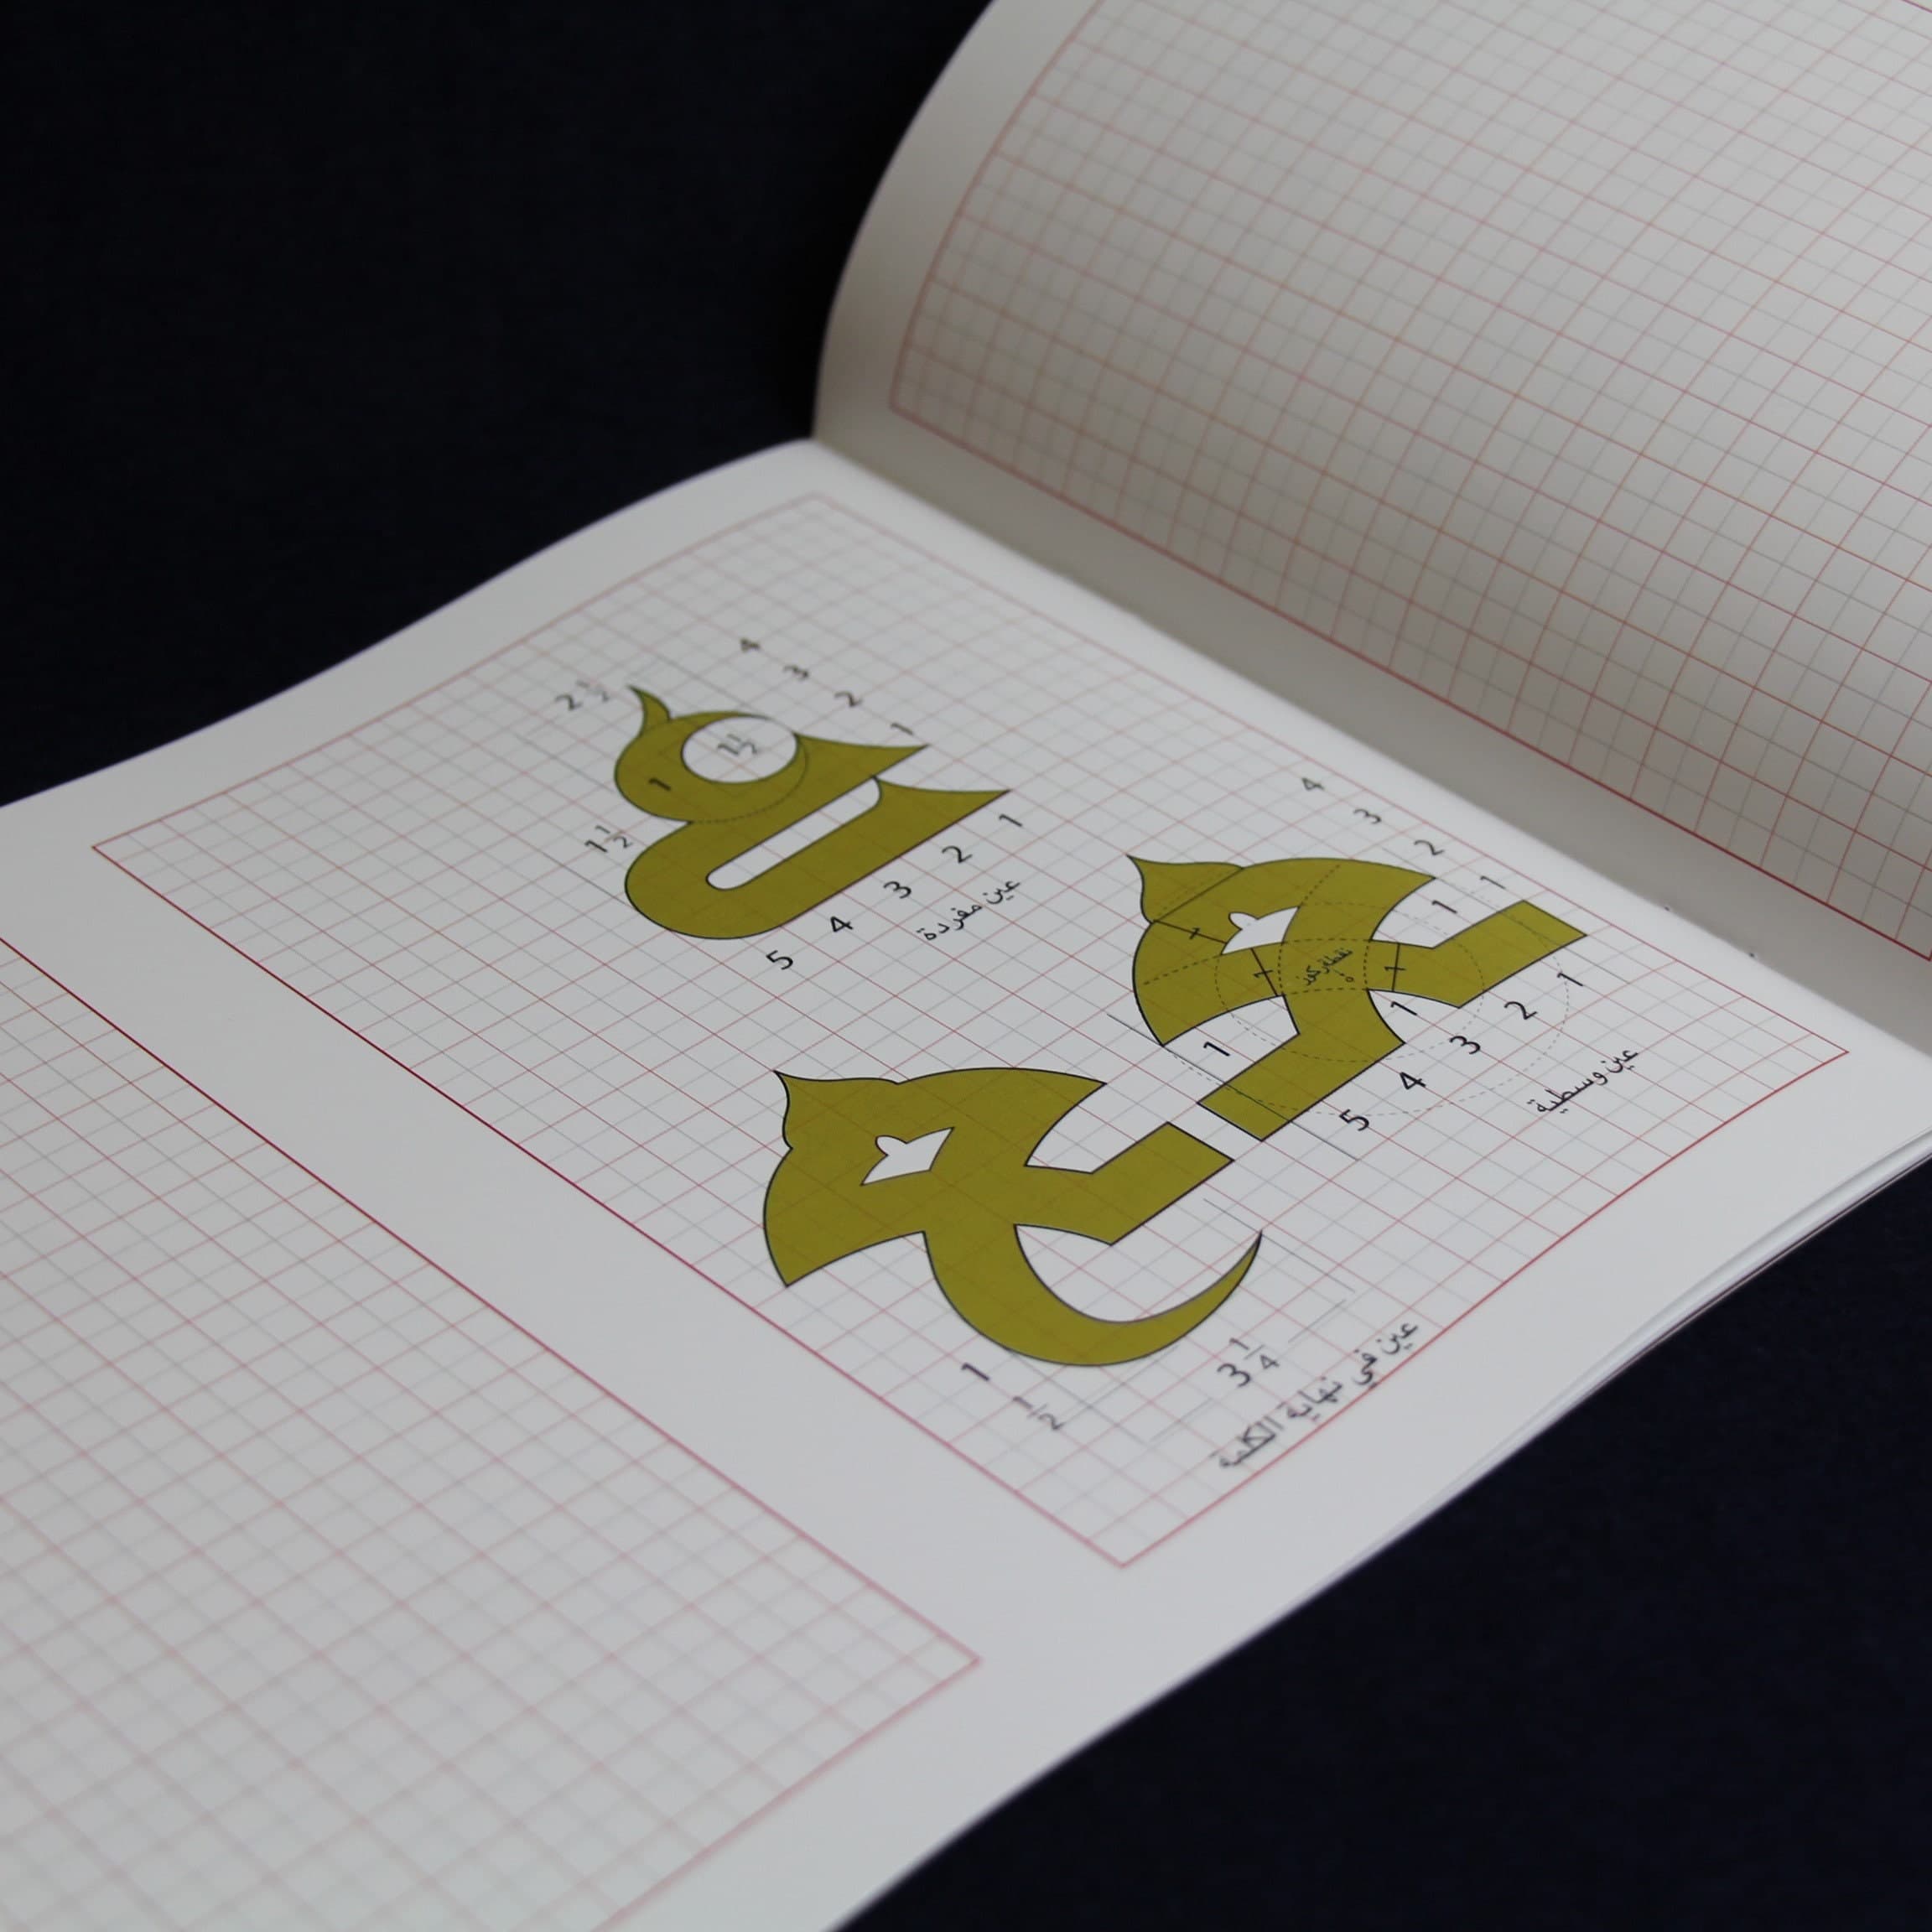 4 3 2 1
2 1/2
1 1/2
1
1 1/2
5 4 3 2 1
عين مفردة
4 3 2 1
1
1
1
1
1
1
5 4 3 2 1
عين وسطية
1
1/2
3 1/4
عين في نهاية الكلمة